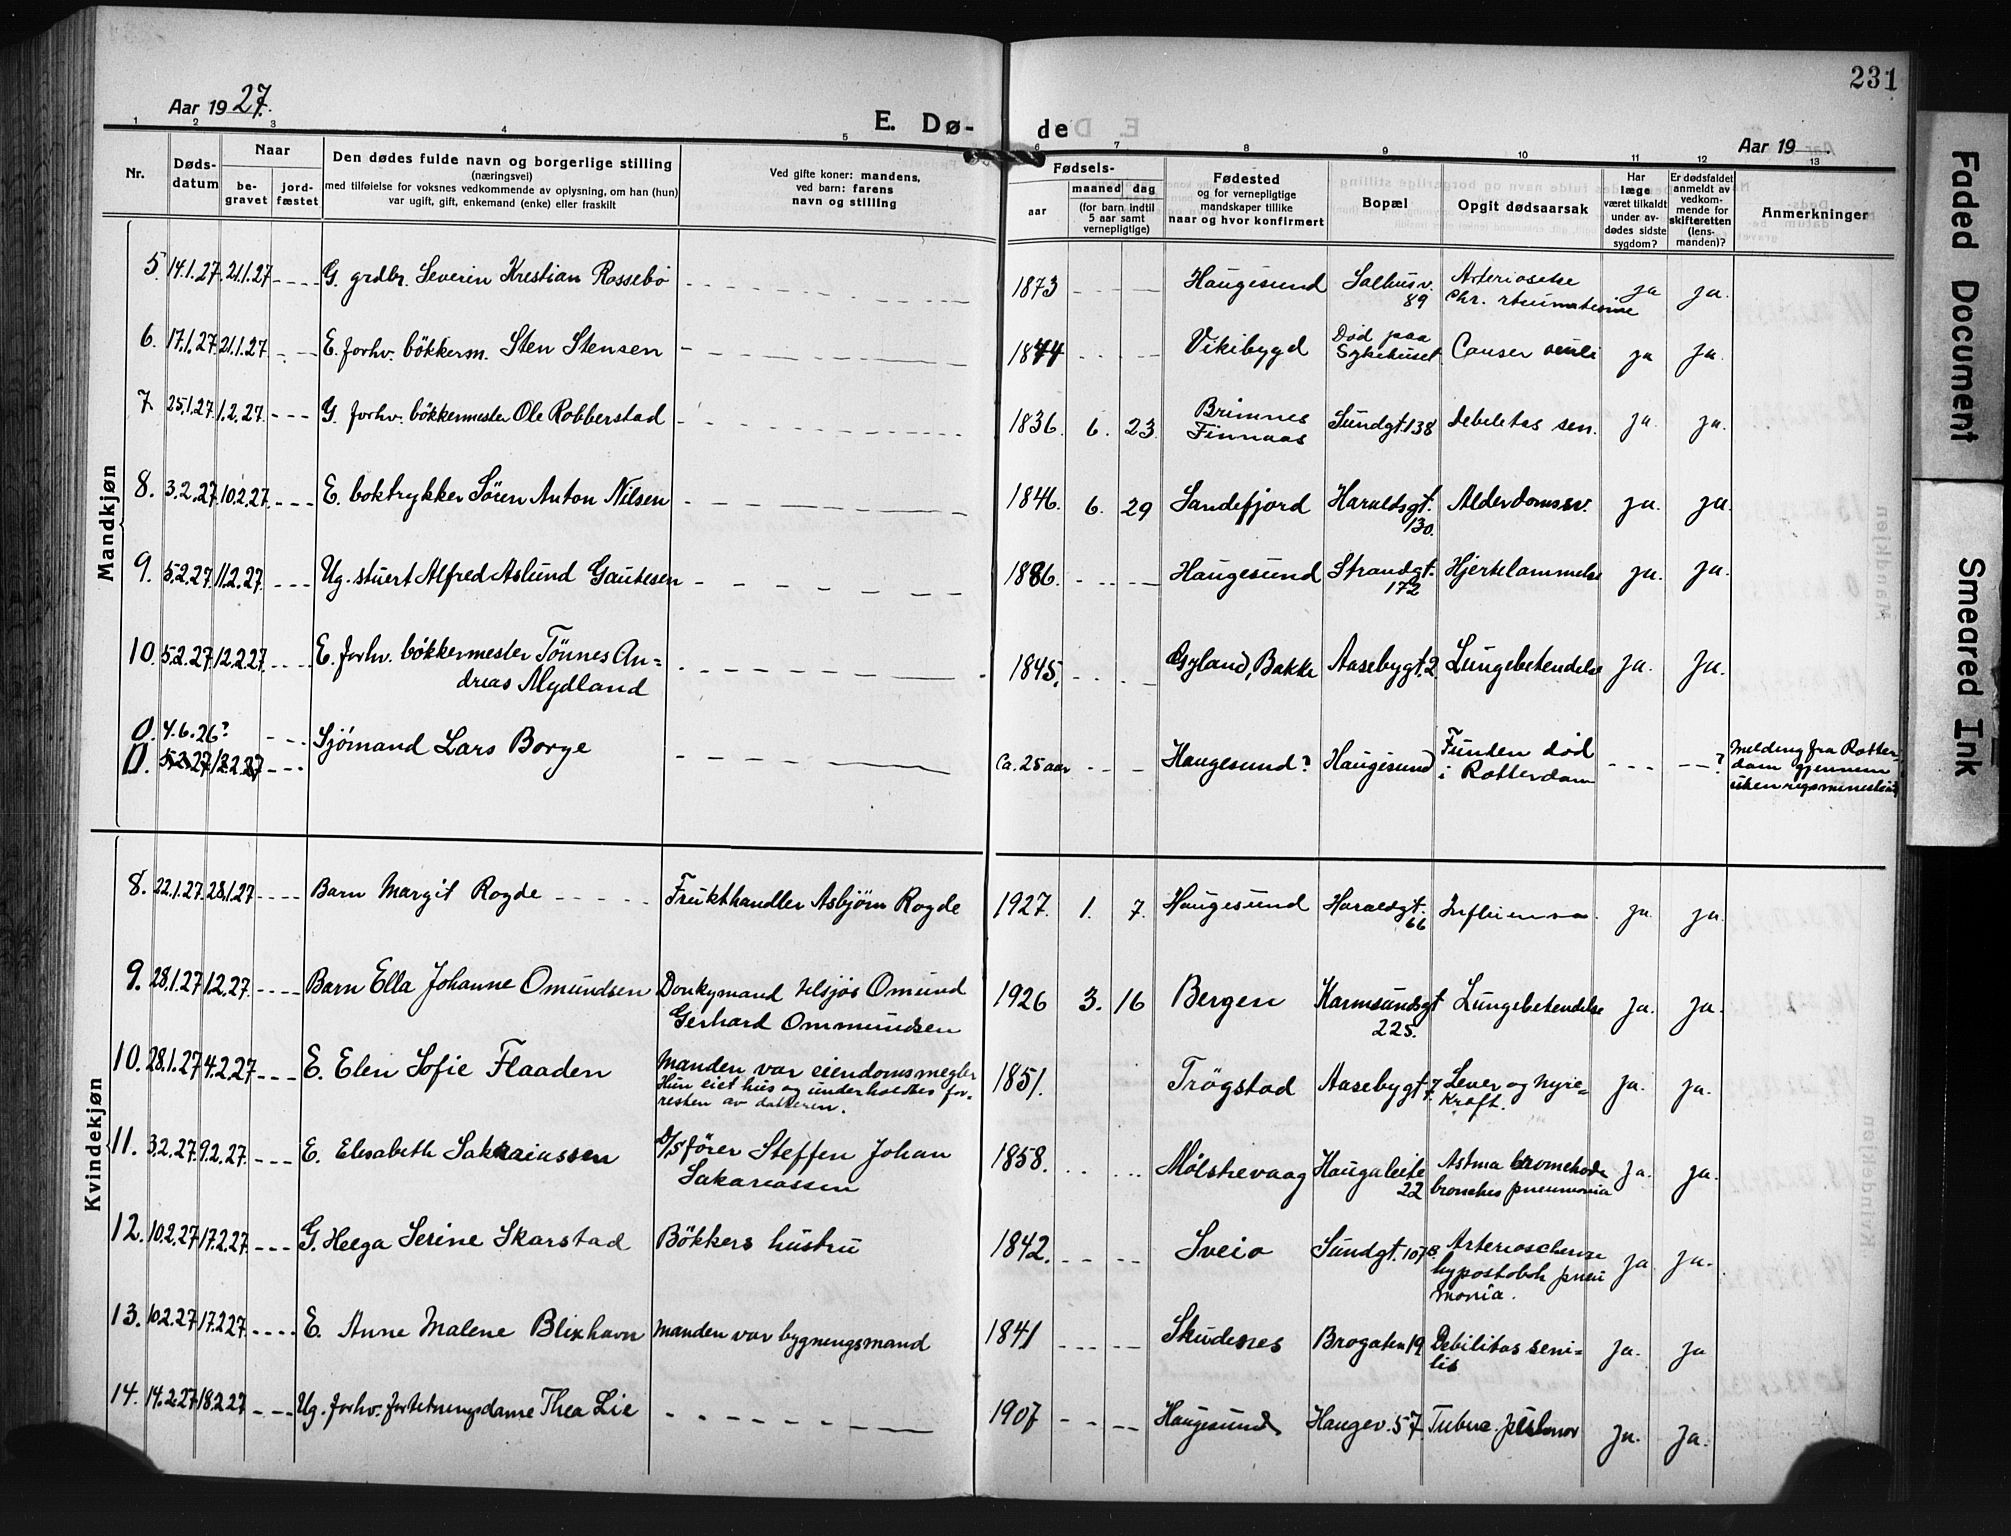 231
Aar 1927.
E. Dø-
de
Aar 19
Nr.
Døds-
datum
Naar
be-
gravet
jord-
fæstet
Den dødes fulde navn og borgerlige stilling
(næringsvei)
med tilføielse for voksnes vedkommende av oplysning, om han (hun)
var ugift, gift, enkemand (enke) eller fraskilt
Ved gifte koner: mandens,
ved barn: farens
navn og stilling
Fødsels-
aar
maaned dag
(for barn indtil
5 aar samt
vernepligtige)
Fødested
og for vernepligtige
mandskaper tillike
naar og hvor konfirmert
Bopæl
Opgit dødsaarsak
Har
læge
været tilkaldt
under av-
dødes sidste
sygdom?
Er dødsfaldet
anmeldt av
vedkom-
mende for
skifteretten
(lens-
manden)?
Anmerkninger
1 2 3 4 5 6 7 8 9 10 11 12 13
Mandkjøn
5. 14.1.27. 21.1.27 G. grdbr. Severin Kristian Rossebø 1873 Haugesund Salhusv. 89 Chr. ja ja.
6. 17.1.27 21.1.27 E. forhv. bökkerm. Sten Stensen 1844 Vikibygd Død paa Sykehuset ja ja.
7. 25.1.27. 1.2.27. G. forhv. bökkermester Ole Robberstad 1836. 6. 23. Brimnes Finnaas Sundgt. 138 Debeletas sen. ja. ja.
8. 3.2.27. 10.2.27. E. boktrykker Sören Anton Nilsen 1846. 6. 29 Sandefjord Haraldsgt. 130. Alderdomssv. ja. ja.
9. 5.2.27. 11.2.27. Ug. stuert Alfred Aslund Gautesen 1886. Haugesund Strandgt. 172 Hjertelammelse ja. ja.
10. 5.2.27. 12.2.27. E. forhv. bökkermester Tönnes An=
dreas Mydland 1845. Gyland, Bakke Aasebygt. 2 Lungebetendelse ja. ja.
0. 4.6.26?
5.2.27 12.2.27 Sjömand Lars Borge Ca. 25 aar Haugesund? Haugesund Funden död
i Rotterdam ? Melding fra Rotter-
dam gjennem
utenrigsministeriet
Kvindekjøn
8. 22.1.27. 28.1.27 Barn Margit Rogde Frukthandler Asbjörn Rogde 1927. 1. 7. Haugesund Haraldgt. 66 Influensa ja. ja.
9. 28.1.27 1.2.27. Barn Ella Johanne Omundsen Donkymand tilsjös Omund
Gerhard Ommundsen 1926 3. 16 Bergen Karmsundsgt 225. Lungebetendelse ja. ja.
10. 28.1.27 4.2.27 E. Elen Sofie Flaaden Manden var eiendomsmegler
Hun eiet hus og underholdtes for-
resten av datteren. 1851. Trögstad Aasebygt. 7. Lever og nyre=
kræft. ja. ja.
11. 3.2.27. 9.2.27. E. Elisabeth Sakkariassen D/S förer Steffen Johan
Sakariassen 1858. Mölstrevaag Haugaleite 22 Astma
pneumonia ja. ja.
12. 10.2.27 17.2.27. G. Helga Serine Skarstad Bökkers hustru 1842. Sveio Sundgt. 107
pneu
monia. ja ja.
13. 10.2.27 17.2.27 E. Anne Malene Blixhavn Manden var bygningsmand 1841 Skudenes Brogaten 19 Debilitas seni=
lis ja. ja
14. 14.2.27 18.2.27 Ug. forhv. fortetningsdame Thea Lie 1907 Haugesund Haugev. 57 ja. ja.
Faded Document
Smeared Ink